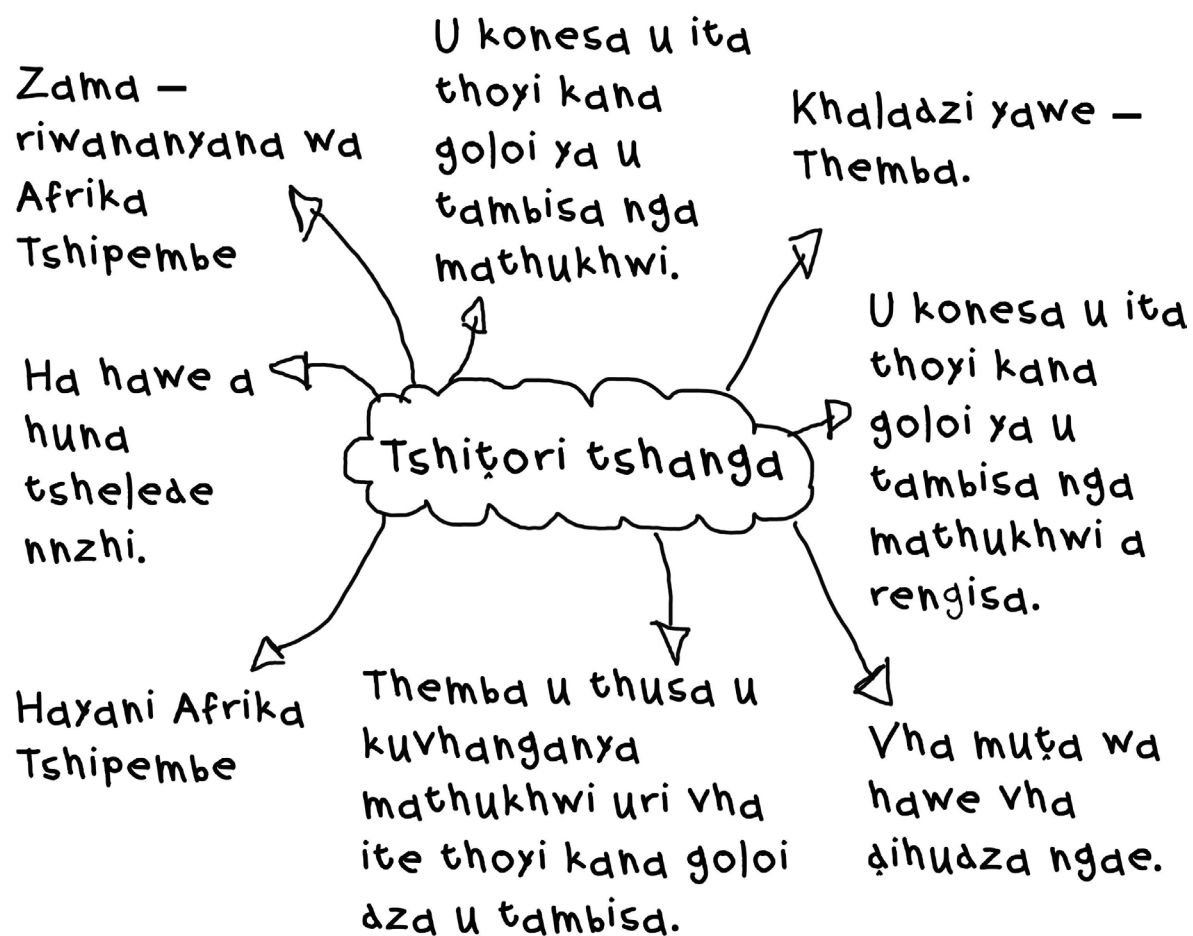 Zama –
riwananyana wa
Afrika
Tshipembe
U konesa u ita
thoyi kana
goloi ya u
tambisa nga
mathukhwi.
Khaladzi yawe –
Themba.
Ha hawe a
huna
tshelede
nnzhi.
Tshiṱori tshanga
U konesa u ita
thoyi kana
goloi ya u
tambisa nga
mathukhwi a
rengisa.
Hayani Afrika
Tshipembe
Themba u thusa u
kuvhanganya
mathukhwi uri vha
ite thoyi kana goloi
dza u tambisa.
Vha muṱa wa
hawe vha
ḓihudza ngae.